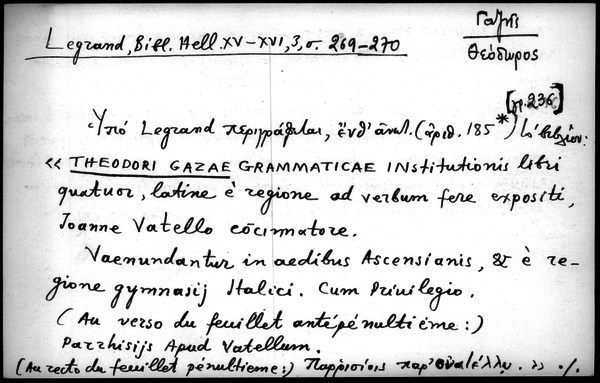 Legrand, Bibl. Hell. XV-XVI, 3, σ. 269-270
Γαζῆς
Θεόδωρος
[σ. 236]
Ὑπό Legrand περιγράφεται, ἔνθ' ἀνωτ. (ἀριθ. 185*) τό βιβλίον:
« THEODORI GAZAE GRAMMATICAE INstitutionis libri
quatuor, latine è regione ad verbum fere expositi,
Joanne Vatello cōcinnatore.
Vaenundantur in aedibus Ascensianis, & è re-
gione gymnasij Italici. Cum Privilegio.
(Au verso du feuillet antépénultième:)
Parrhisijs Apud Vatellum.
(Au recto du feuillet pénultième:) Παρρισίοις παρ' ./.